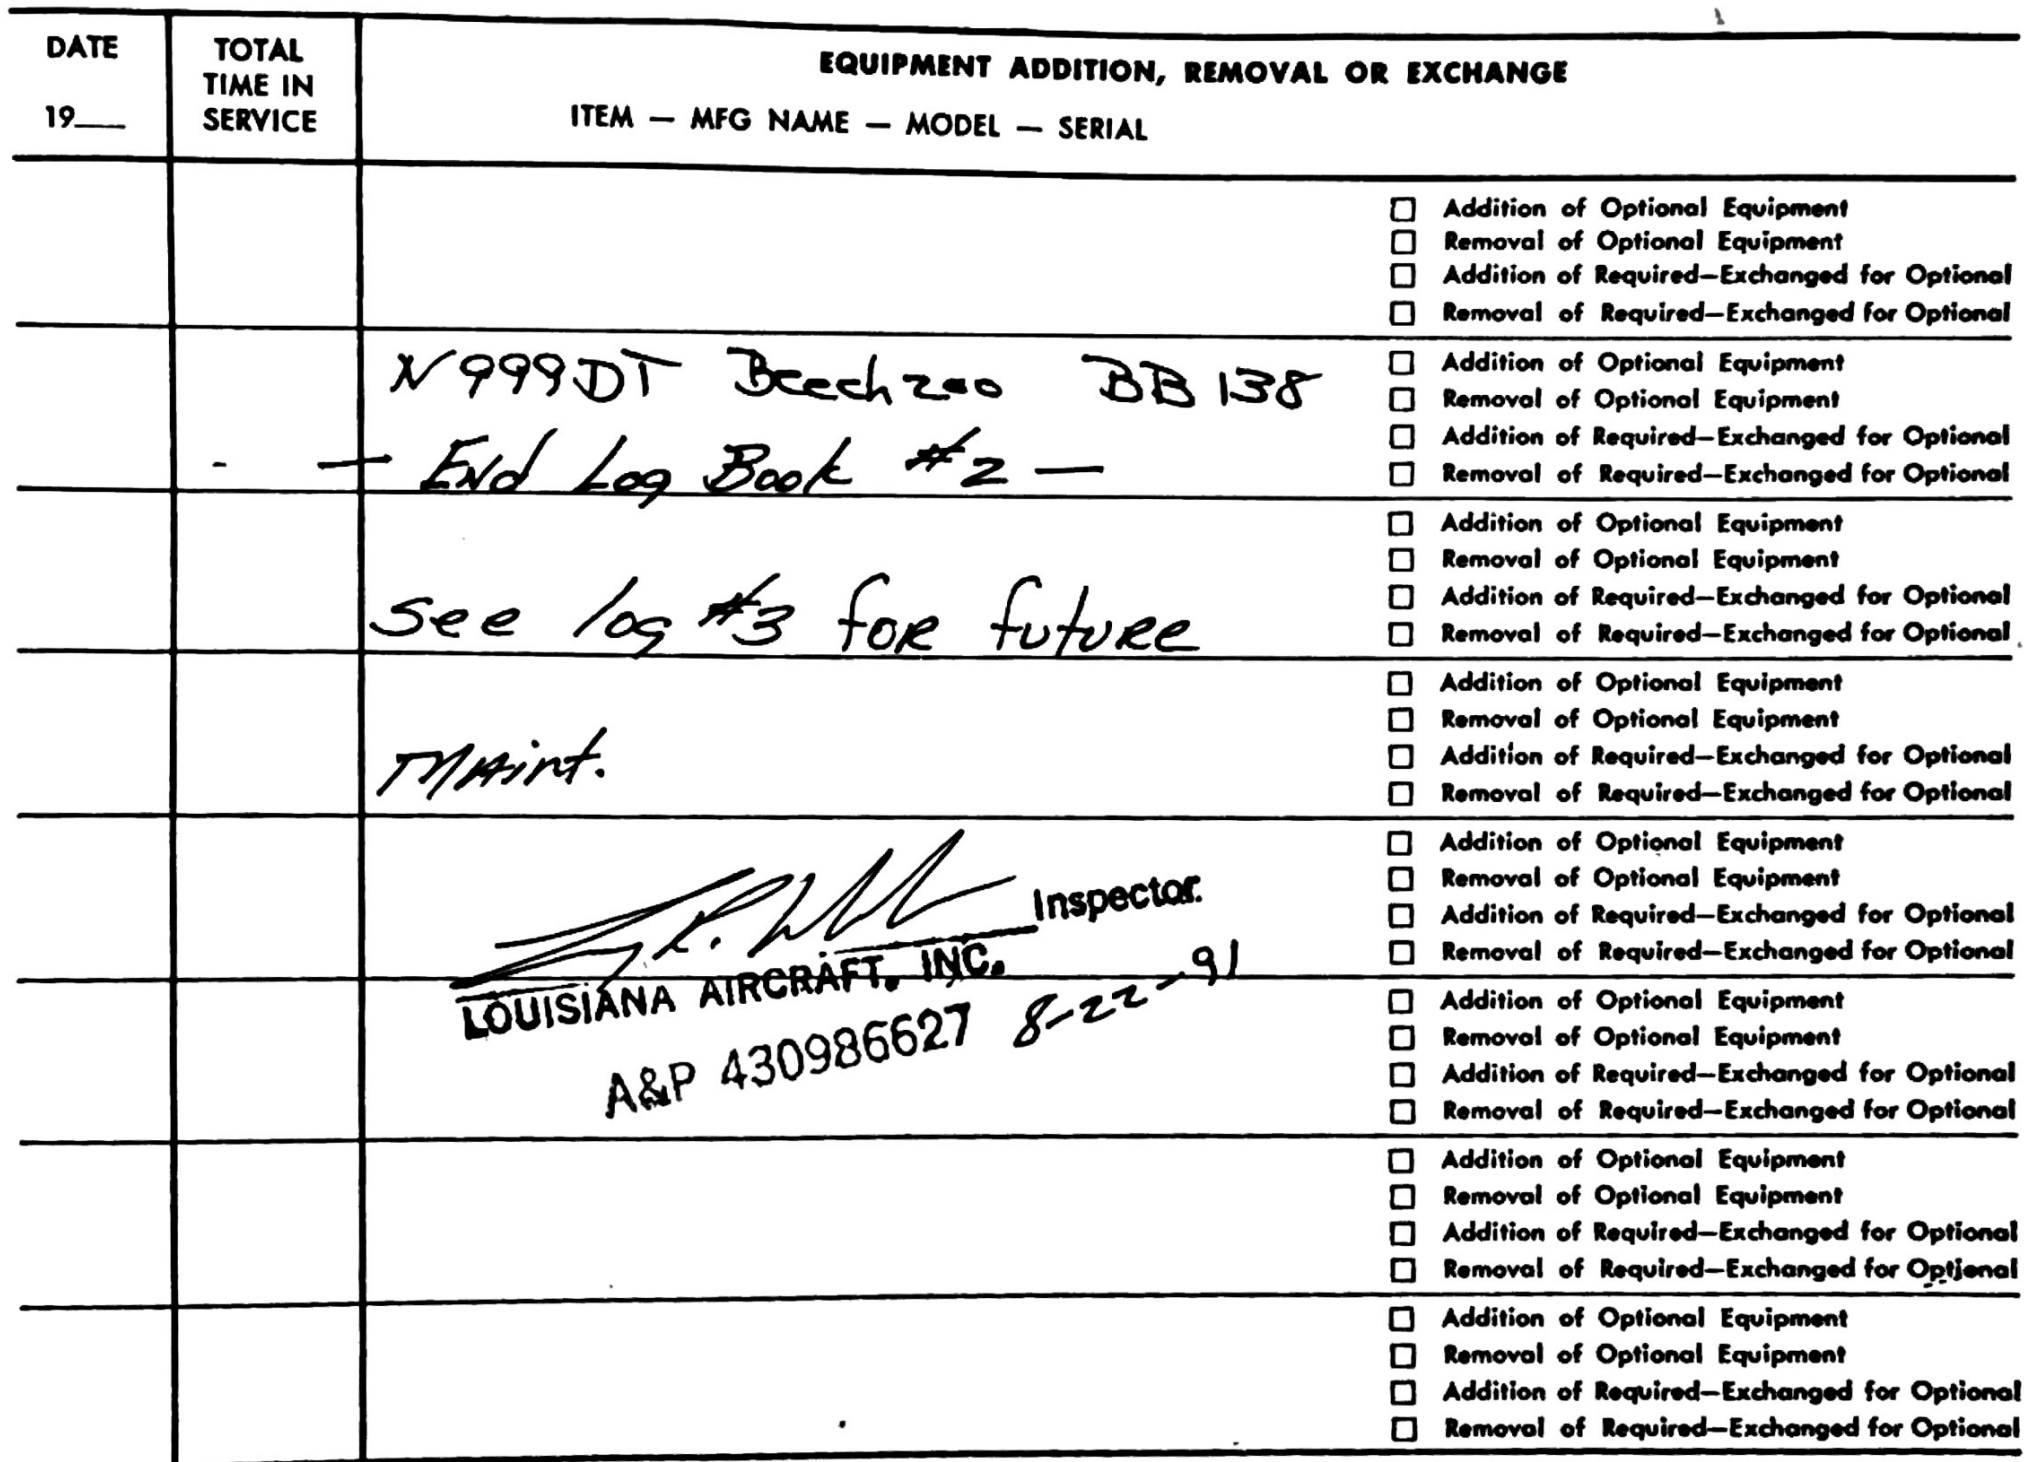 DATE
19__
TOTAL
TIME IN
SERVICE
EQUIPMENT ADDITION, REMOVAL OR EXCHANGE
ITEM — MFG NAME — MODEL — SERIAL
☐ Addition of Optional Equipment
☐ Removal of Optional Equipment
☐ Addition of Required—Exchanged for Optional
☐ Removal of Required—Exchanged for Optional
N999DT Beech 200 BB 138
- — End Log Book #2 —
☐ Addition of Optional Equipment
☐ Removal of Optional Equipment
☐ Addition of Required—Exchanged for Optional
☐ Removal of Required—Exchanged for Optional
See log #3 for future
☐ Addition of Optional Equipment
☐ Removal of Optional Equipment
☐ Addition of Required—Exchanged for Optional
☐ Removal of Required—Exchanged for Optional
Maint.
☐ Addition of Optional Equipment
☐ Removal of Optional Equipment
☐ Addition of Required—Exchanged for Optional
☐ Removal of Required—Exchanged for Optional
Inspector.
☐ Addition of Optional Equipment
☐ Removal of Optional Equipment
☐ Addition of Required—Exchanged for Optional
☐ Removal of Required—Exchanged for Optional
LOUISIANA AIRCRAFT, INC.
A&P 430986627 8-22-91
☐ Addition of Optional Equipment
☐ Removal of Optional Equipment
☐ Addition of Required—Exchanged for Optional
☐ Removal of Required—Exchanged for Optional
☐ Addition of Optional Equipment
☐ Removal of Optional Equipment
☐ Addition of Required—Exchanged for Optional
☐ Removal of Required—Exchanged for Optional
☐ Addition of Optional Equipment
☐ Removal of Optional Equipment
☐ Addition of Required—Exchanged for Optional
☐ Removal of Required—Exchanged for Optional